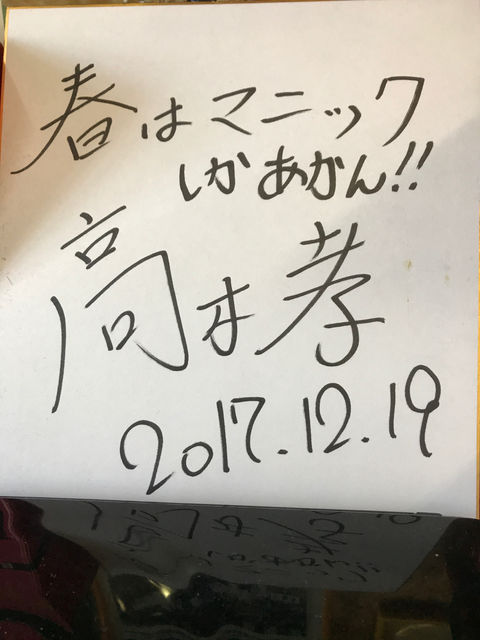 春はマニック
しかあかん!!
高木孝
2017.12.19